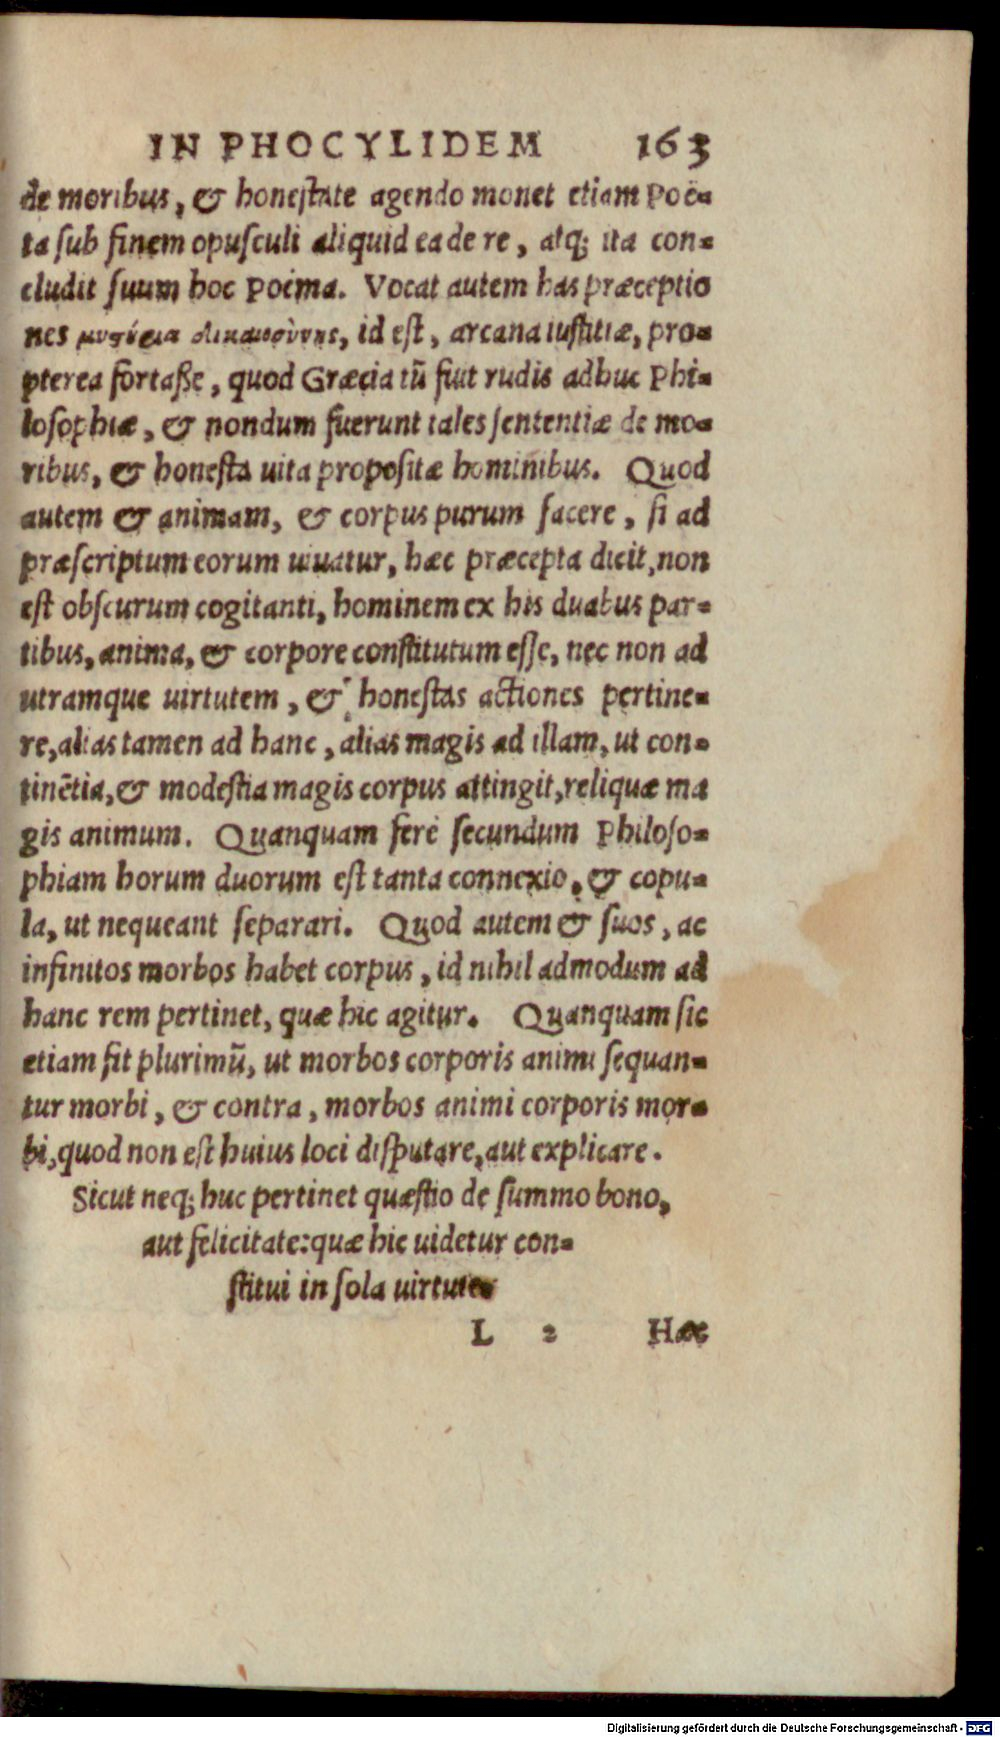 IN PHOCYLIDEM 163
de moribus, & honestate agendo monet etiam Poë-
ta sub finem opusculi aliquid ea de re, atq; ita con-
cludit suum hoc Poëma. Vocat autem has præceptio
nes μυστήρια δικαιοσύνης, id est, arcana iustitiæ, pro-
pterea fortaße, quod Græcia tũ fiut rudis adhuc Phi-
losophiæ, & nondum fuerunt tales sententiæ de mo-
ribus, & honesta uita propositæ hominibus. Quod
autem & animam, & corpus purum facere, si ad
præscriptum eorum uiuatur, hæc præcepta dicit, non
est obscurum cogitanti, hominem ex his duabus par-
tibus, anima, & corpore constitutum esse, nec non ad
utramque uirtutem, & honestas actiones pertine-
re, alias tamen ad hanc, alias magis ad illam, ut con-
tinẽtia, & modestia magis corpus attingit, reliquæ ma
gis animum. Quanquam ferè secundum Philoso-
phiam horum duorum est tanta connexio, & copu-
la, ut nequeant separari. Quod autem & suos, ac
infinitos morbos habet corpus, id nihil admodum ad
hanc rem pertinet, quæ hic agitur. Quanquam sic
etiam fit plurimũ, ut morbos corporis animi sequan-
tur morbi, & contra, morbos animi corporis mor-
bi, quod non est huius loci disputare, aut explicare.
Sicut neq; huc pertinet quæstio de summo bono,
aut felicitate: quæ hic uidetur con-
stitui in sola uirtute
L 2 Hæc
Digitalisierung gefördert durch die Deutsche Forschungsgemeinschaft - DFG